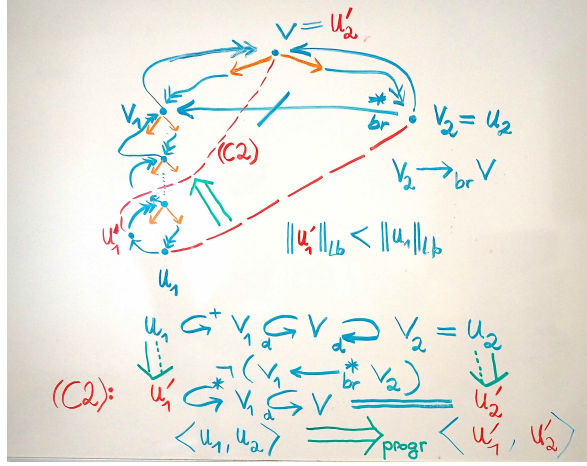 V = u₂′
V₁
*
br
V₂ = u₂
(C2)
V₂ →br V
u₁′
‖u₁′‖lb < ‖u₁‖lb
u₁
u₁ ↪⁺ V₁ d↪ V d↩ V₂ = u₂
¬(V₁ ←*br V₂)
(C2): u₁′ ↪* V₁ d↪ V = u₂′
⟨u₁, u₂⟩ ⇒progr ⟨u₁′, u₂′⟩